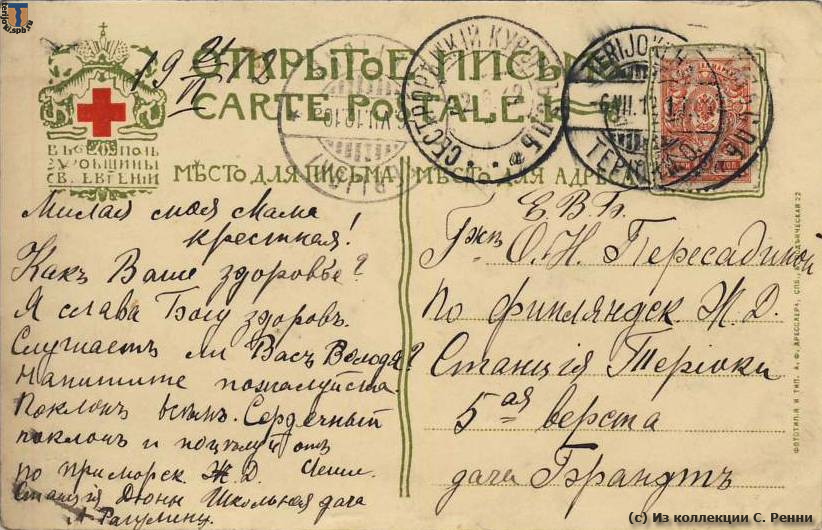 terijoki.spb.ru
19 21/IV 12
ОТКРЫТОЕ ПИСЬМО
CARTE POSTALE
СЕСТРОРѢЦКІЙ КУРОРТЪ
TERIJOKI
6.VII.12
ТЕРІОКИ
ВЪ ПОЛЬЗУ ОБЩИНЫ
СВ. ЕВГЕНІИ
МѢСТО ДЛЯ ПИСЬМА
МѢСТО ДЛЯ АДРЕСА
Милая моя Мама
крестная!
Какъ Ваше здоровье?
Я слава Богу здоровъ.
Слушаетъ ли Васъ Володя?
Напишите пожалуйста.
Поклонъ всѣмъ. Сердечный
поклонъ и поцѣлуй отъ
по приморск. Ж. Д.
Станція Дюны Школьная дача
Е. В. Б.
Гжѣ О. Н. Пересадиной
По финляндск. Ж. Д.
Станція Теріоки
5ая верста
дача Брандтъ
ФОТОТИПІЯ И ТИП. А. Ф. ДРЕССЛЕРА, СПБ., 22
(c) Из коллекции С. Ренни